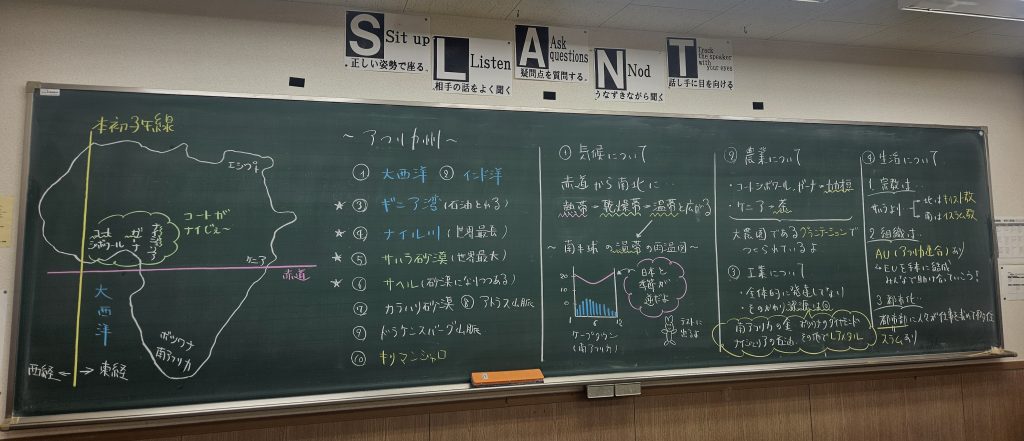 S Sit up
正しい姿勢で座る.
L Listen
相手の話をよく聞く
A Ask questions
疑問点を質問する.
N Nod
うなずきながら聞く
T Track the speaker with your eyes
話し手に目を向ける
本初子午線
エジプト
コートが
ナイじぇ〜
コートジボワール
ガーナ
ナイジェリア
ケニア
赤道
大西洋
ボツワナ
南アフリカ
西経 ← → 東経
〜アフリカ州〜
① 大西洋 ② インド洋
★ ③ ギニア湾 (石油とれる)
★ ④ ナイル川 (世界最長)
★ ⑤ サハラ砂漠 (世界最大)
★ ⑥ サヘル (砂漠になりつつある)
⑦ カラハリ砂漠 ⑧ アトラス山脈
⑨ ドラケンスバーグ山脈
⑩ キリマンジャロ
① 気候について
赤道から南北に…
熱帯→乾燥帯→温帯と広がる
〜南半球の温帯の雨温図〜
20
10
0
1 6 12
ケープタウン
(南アフリカ)
日本と
季節が
逆だよ
テストに
出るよ
② 農業について
・コートジボワール、ガーナのカカオ
・ケニアの茶
大農園であるプランテーションで
つくられているよ
③ 工業について
・全体的に発達してない
・そのかわり資源は◎
南アフリカの金 ボツワナのダイヤモンド
ナイジェリアの石油 その他でレアメタル
④ 生活について
1 宗教は…
サハラより
北はキリスト教
南はイスラム教
2 組織は…
AU (アフリカ連合) あり
EUを手本に結成
みんなで助け合っていこう!
3 都市化…
都市部に人々が仕事を求めて
スラムあり